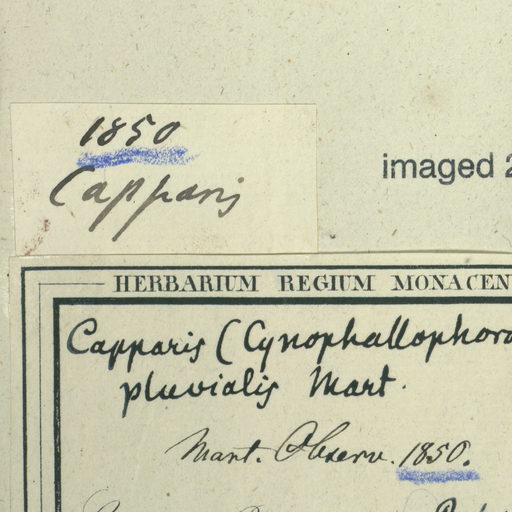 1850
Capparis
imaged 2
HERBARIUM REGIUM MONACEN
Capparis (Cynophallophora
pluvialis Mart.
Mart. Observ. 1850.